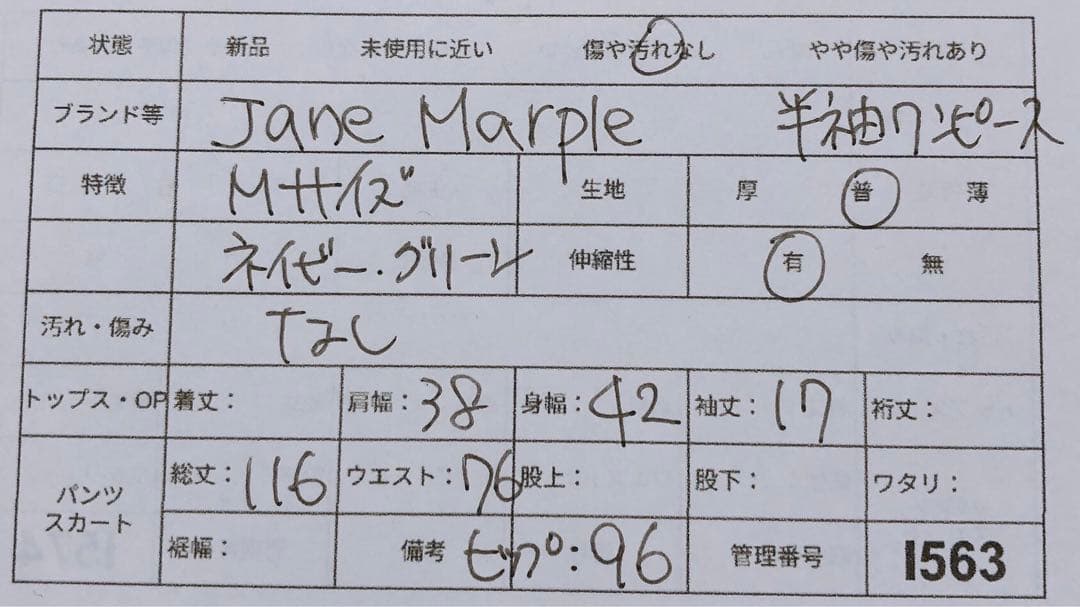 状態 新品 未使用に近い 傷や汚れなし やや傷や汚れあり
ブランド等 Jane Marple 半袖ワンピース
特徴 Mサイズ 生地 厚 普 薄
ネイビー・グリーン 伸縮性 有 無
汚れ・傷み なし
トップス・OP 着丈： 肩幅：38 身幅：42 袖丈：17 裄丈：
パンツ スカート 総丈：116 ウエスト：76 股上： 股下： ワタリ：
裾幅： 備考 ヒップ：96 管理番号 1563
1574